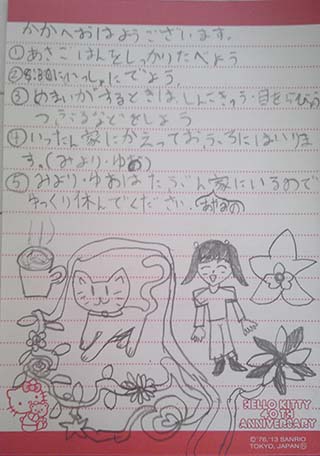 かかへおはようございます。
①あさごはんをしっかりたべよう
②8:30にいっしょにでよう。
③めまいがするときは、しんこきゅう・目をつぶろう
つ、
などをしよう
④いったん家にかえっておふろにはいりま
す。(みより・ゆあ)
⑤みより・ゆあはたぶん家にいるので
ゆっくり休んでください。
HELLO KITTY
40TH
ANNIVERSARY
© '76,'13 SANRIO
TOKYO, JAPAN